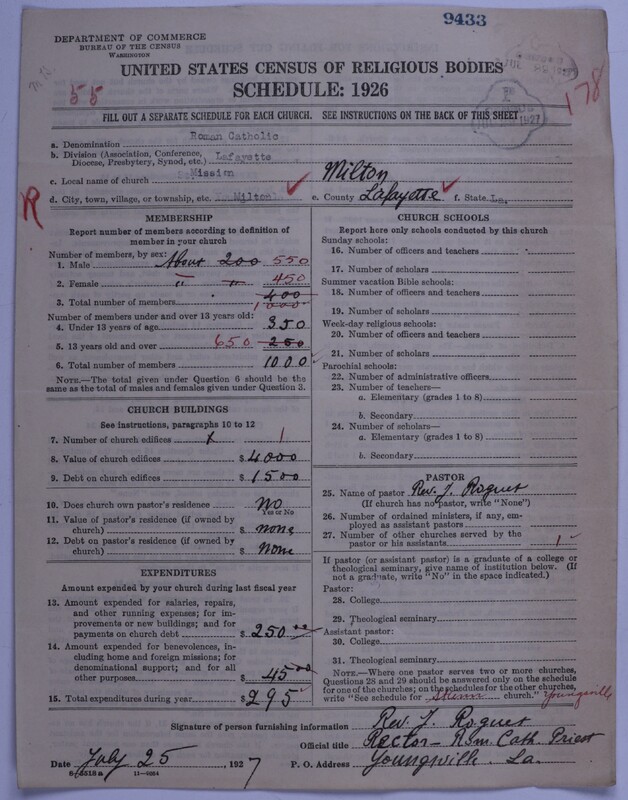 9433
DEPARTMENT OF COMMERCE
BUREAU OF THE CENSUS
WASHINGTON
UNITED STATES CENSUS OF RELIGIOUS BODIES
SCHEDULE: 1926
55
178
1927
FILL OUT A SEPARATE SCHEDULE FOR EACH CHURCH. SEE INSTRUCTIONS ON THE BACK OF THIS SHEET
a. Denomination Roman Catholic
b. Division (Association, Conference, Diocese, Presbytery, Synod, etc.) Lafayette
c. Local name of church Mission Milton
d. City, town, village, or township, etc. Milton e. County Lafayette f. State La.
R
MEMBERSHIP
Report number of members according to definition of member in your church
Number of members, by sex:
1. Male About 200 550
2. Female " " 450
3. Total number of members 400 1000
Number of members under and over 13 years old:
4. Under 13 years of age 350
5. 13 years old and over 650 250
6. Total number of members 1000
NOTE.—The total given under Question 6 should be the same as the total of males and females given under Question 3.
CHURCH BUILDINGS
See instructions, paragraphs 10 to 12
7. Number of church edifices 1
8. Value of church edifices $ 4000
9. Debt on church edifices $ 1500
10. Does church own pastor's residence No
Yes or No
11. Value of pastor's residence (if owned by church) $ none
12. Debt on pastor's residence (if owned by church) $ None
EXPENDITURES
Amount expended by your church during last fiscal year
13. Amount expended for salaries, repairs, and other running expenses; for improvements or new buildings; and for payments on church debt $ 250.00
14. Amount expended for benevolences, including home and foreign missions; for denominational support; and for all other purposes $ 45.00
15. Total expenditures during year $ 295
CHURCH SCHOOLS
Report here only schools conducted by this church
Sunday schools:
16. Number of officers and teachers
17. Number of scholars
Summer vacation Bible schools:
18. Number of officers and teachers
19. Number of scholars
Week-day religious schools:
20. Number of officers and teachers
21. Number of scholars
Parochial schools:
22. Number of administrative officers
23. Number of teachers—
a. Elementary (grades 1 to 8)
b. Secondary
24. Number of scholars—
a. Elementary (grades 1 to 8)
b. Secondary
PASTOR
25. Name of pastor Rev. J. Roguet
(If church has no pastor, write "None")
26. Number of ordained ministers, if any, employed as assistant pastors
27. Number of other churches served by the pastor or his assistants 1
If pastor (or assistant pastor) is a graduate of a college or theological seminary, give name of institution below. (If not a graduate, write "No" in the space indicated.)
Pastor:
28. College
29. Theological seminary
Assistant pastor:
30. College
31. Theological seminary
NOTE.—Where one pastor serves two or more churches, Questions 28 and 29 should be answered only on the schedule for one of the churches; on the schedules for the other churches, write "See schedule for church." Youngsville
Signature of person furnishing information Rev. J. Roguet
Official title Rector - Rom. Cath. Priest
Date July 25, 1927 P. O. Address Youngville La.
8-5518a 11-9064